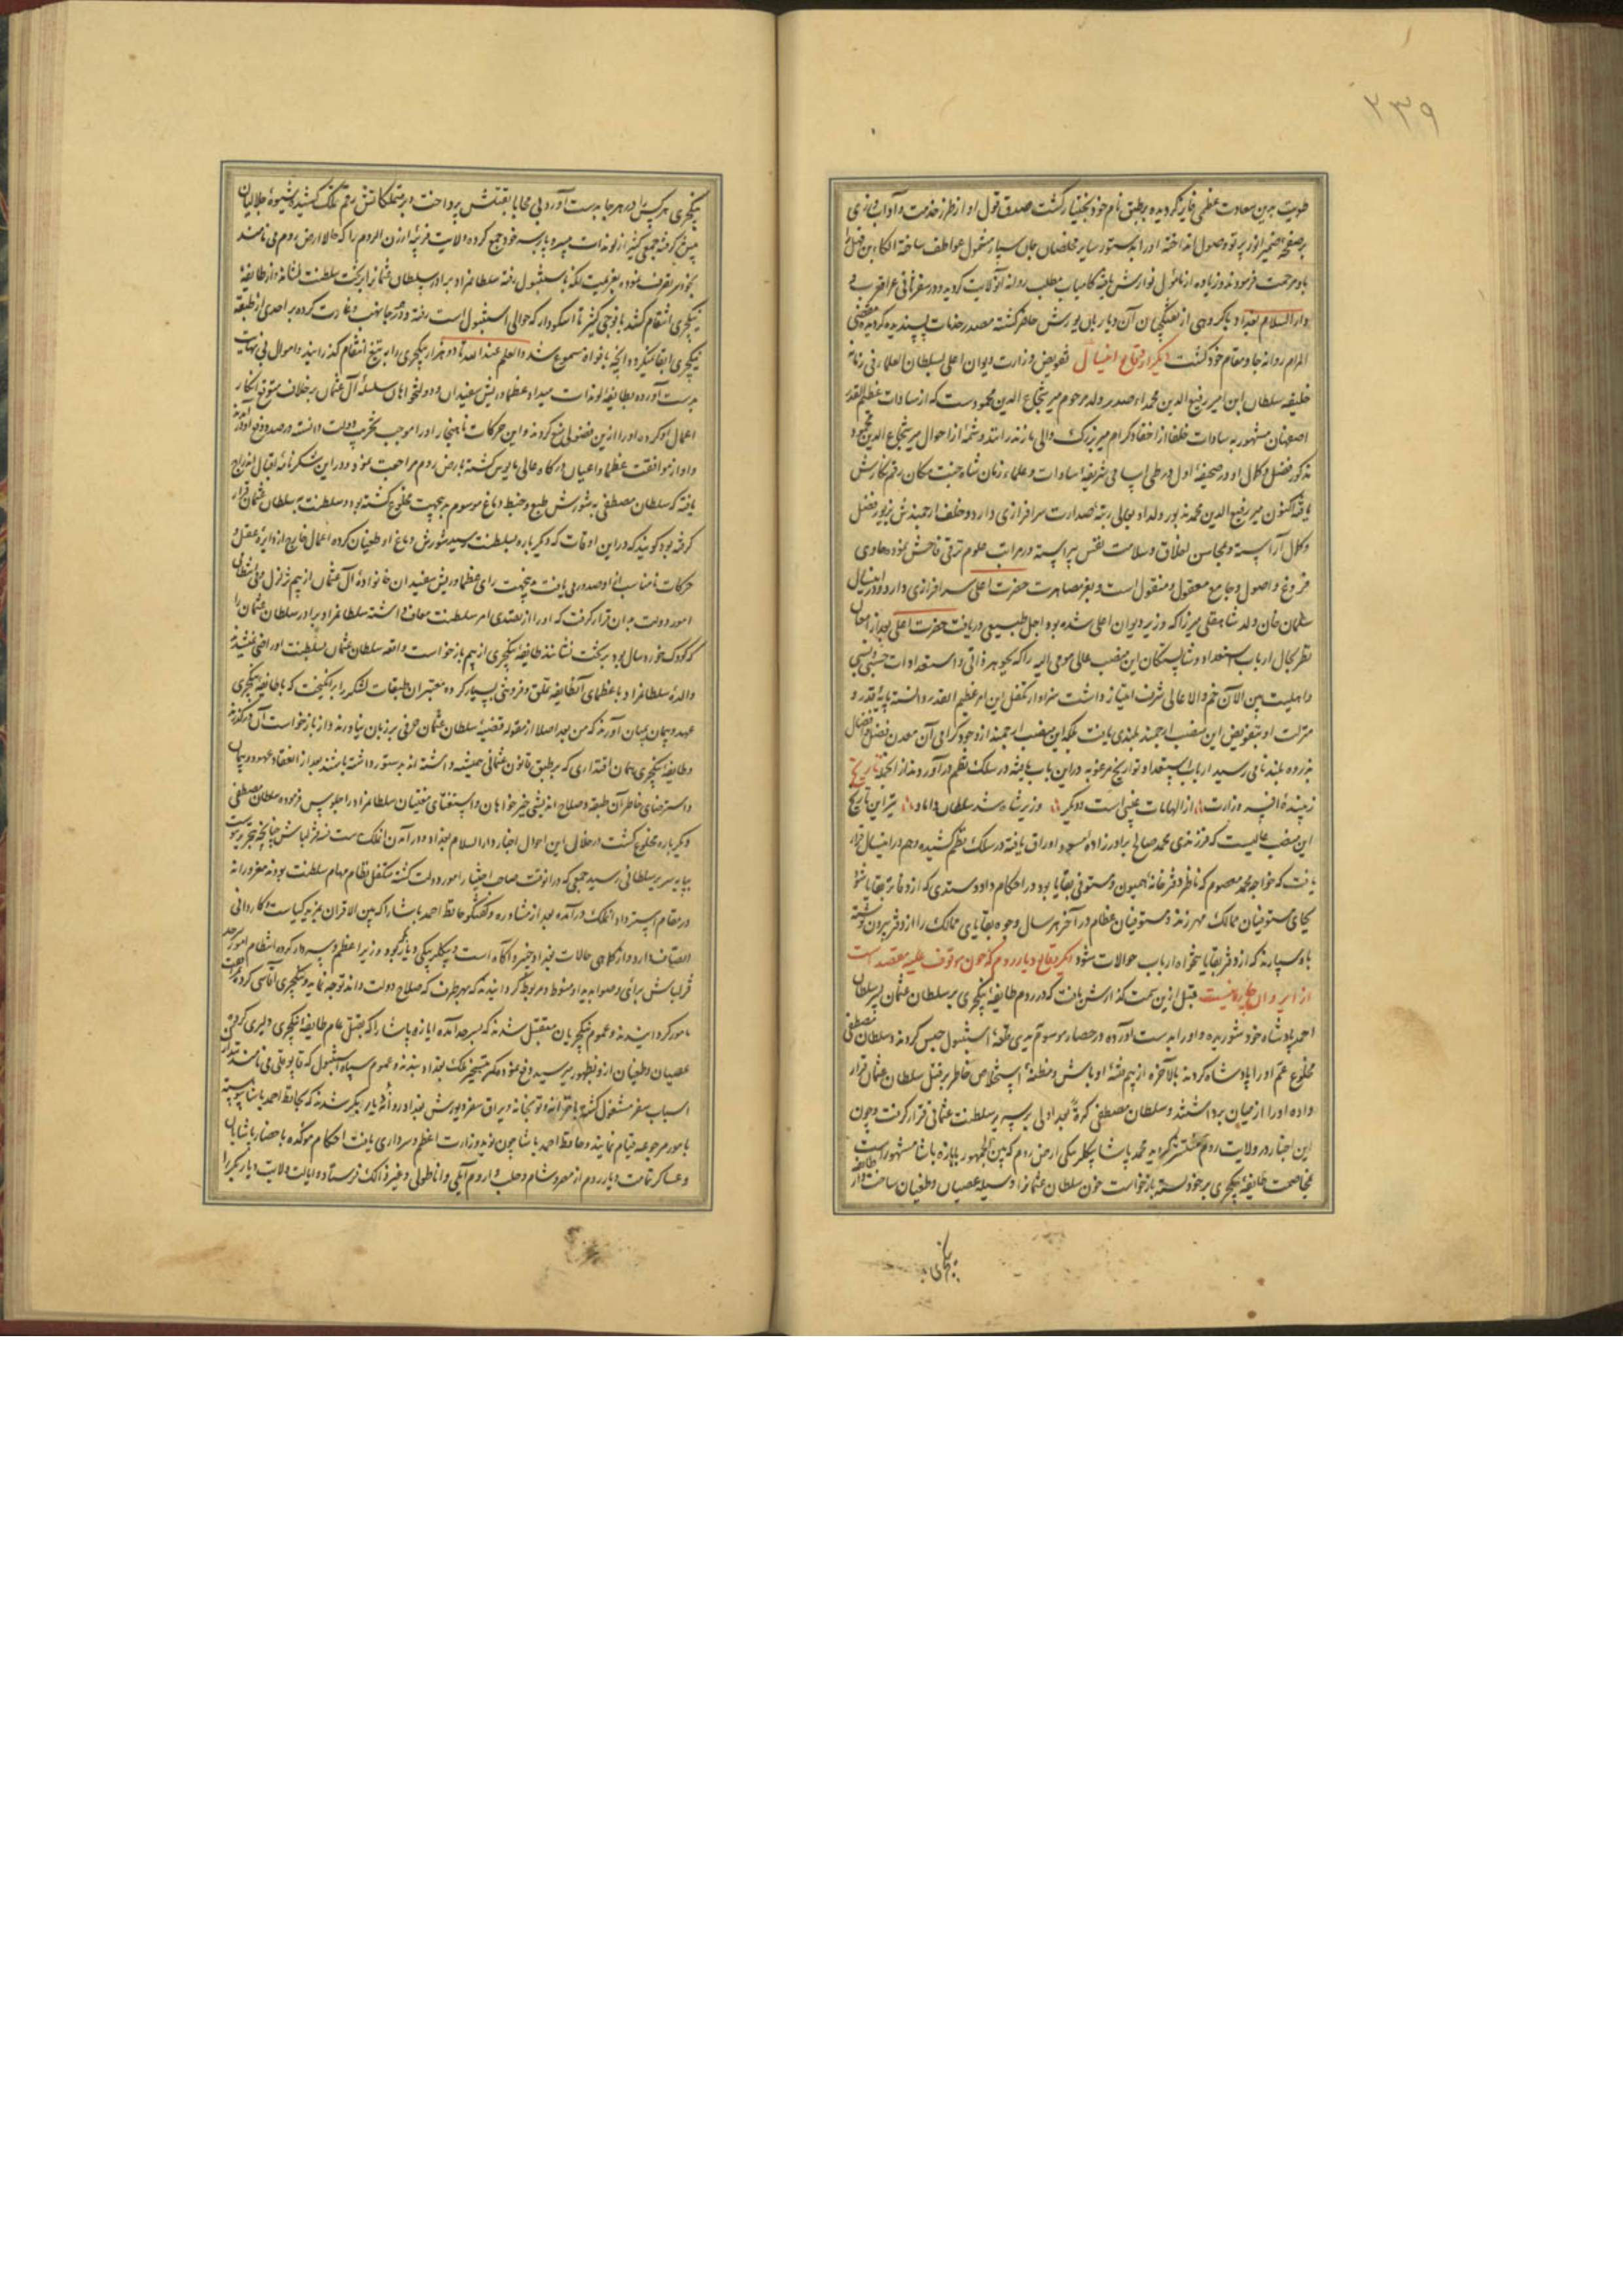 ۲۳۹
طویت بدین سعادت عظمی فایز گردیده بر طبق نام خود بختیار گشت صدق قول او از طرز خدمت و آداب
بر صفحه ضمیر انور پرتو وصول انداخته او را بدستور سایر مخلصان جان سپار مشمول عواطف ساخته الکاء
باو مرحمت فرمودند و زیاده از مأمول نوازش یافته کامیاب مطلب روانه آنولایت گردید و در سفر ثانی عراق عرب
دار السلام بغداد با گروهی از تفنگچیان آن دیار بآن یورش حاضر گشته مصدر خدمات پسندیده گردیده مقضی
المرام روانه جا و مقام خود گشت دیگر از وقایع اینسال تفویض وزارت دیوان اعلی بسلطان العلماء فی زمانه
خلیفه سلطان ابن امیر رفیع الدین محمد صدر ولد مرحوم میر شجاع الدین محمود است که از سادات عظیم القدر
اصفهان مشهور به سادات خلفا از احفاد کرام میر بزرگ والی مازندرانند و شمه از احوال میر شجاع الدین محمود
مذکور و فضل و کمال او در صحیفه اول در طی اسامی شریفه سادات و علماء زمان شاه جنت مکان رقم نگارش
یافته اکنون میر رفیع الدین محمد مذبور ولد او بوالی رتبه صدارت سرافرازی دارد و خلف ارجمندش بزیور فضل
و کمال آراسته و محاسن اخلاق و سلامت نفس پیراسته در مراتب علوم ترقی فاحش نموده حاوی
فروع و اصول و جامع معقول و منقول است و بعز مصاهرت حضرت اعلی سرافرازی دارد و در اینسال
سلمان خان ولد شاهقلی میرزا که وزیر دیوان اعلی شده بود اجل طبیعی دریافت حضرت اعلی بعد از امعان
نظر بحال ارباب استعداد و شایستگان این منصب عالی مومی الیه را که بجوهر ذاتی و استعدادات حسبی و نسبی
و اهلیت بین الاقران خم والا عالی شرف امتیاز داشت سزاوار تکفل این امر عظیم القدر دانسته پایه قدر و
منزلت او بتفویض این منصب ارجمند بلندی یافت بلکه این منصب ارجمند از وجود گرامی آن معدن فضل و افضال
بذروه بلند نامی رسید ارباب استعداد تواریخ مرغوبه در این باب یافته در سلک نظم درآوردند از انجمله تاریخ
زیبنده افسر وزارت از الهامات غیبی است و دیگر وزیر شاه شد سلطان داماد نیز این تاریخ
این منصب عالیست که فرزندی محمد صالح برادر زاده مسود اوراق یافته در سلک نظم کشیده و هم در اینسال قرار
یافت که خواجه محمد معصوم که ناظر دفتر خانه همیون و مستوفی بقایا بود در احکام داد و ستدی که از دفاتر بقایا شود
بجای مستوفیان ممالک مهر زند و مستوفیان عظام در آخر هر سال وجوه بقایای ممالک را از دفتر بیرون نوشته
باو سپارند که از دفتر بقایا بتنخواه ارباب حوالات شود دیگر وقایع دیار روم که چون موقوف علیه مقصد است
از ایراد آن چاره نیست قبل ازین سمت گذارش یافت که در روم طایفه ینگچری بر سلطان عثمان پسر سلطان
احمد پادشاه خود شوریده و او را بدست آورده در حصار موسوم به یدی قله استنبول حبس کردند و سلطان مصطفی
مخلوع عم او را پادشاه کردند بالآخره از بیم فتنه اوباش و مظنه استخلاص خاطر بر قتل سلطان عثمان قرار
داده او را از میان برداشتند و سلطان مصطفی کرة بعد اولی بر سریر سلطنت عثمانی قرار گرفت و چون
این اخبار در ولایت روم منتشر گردید محمد پاشا بیگلربیگی ارض روم که بین الجمهور بابازه پاشا مشهور است
مخاصمت طایفه ینگچری بر خود بسته بازخواست خون سلطان عثمانرا وسیله عصیان و طغیان ساخت و از طایفه
ینگچری هر کس را در هر جا بدست آورد بی محابا بقتلش پرداخت و بر متملکاتش رقم تملک کشید و شیوه جلالیان
پیش گرفته جمعی کثیر از لوندات بی سر و پا بر سر خود جمع کرده ولایت قریه ارزن الروم را که حالا ارض روم می نامند
بحوزه تصرف نموده بعزیمت آنکه باستنبول رفته سلطانمراد برادر سلطان عثمانرا بر تخت سلطنت نشاند و از طایفه
ینگچری انتقام کشد با فوجی کثیر تا اسکودار که حوالی استنبول است رفته و در هر جا نهب و غارت کرده بر احدی از طبقه
ینگچری ابقا نمیکرد و آنچه بافواه مسموع شد و العلم عند الله تا دو هزار ینگچری را به تیغ انتقام گذرانید و اموال بی نهایت
بدست آورده بطایفه لوندات میداد عظما و ریش سفیدان و دولتخواهان سلسله آل عثمان بر خلاف متوقع انکار
اعمال او کرده او را ازین فضولی منع کردند و این حرکات ناهنجار او را موجب تخریب دولت دانسته در صدد دفع او
و او از موافقت عظما و اعیان درگاه عالی مأیوس گشته بارض روم مراجعت نمود و در این شکرنامه اقبال اندراج
یافته که سلطان مصطفی به شورش طبع و خبط دماغ موسوم به جهت مخلوع گشته بود و سلطنت به سلطان عثمان قرار
گرفته بود گویند که در این اوقات که دیگر باره به سلطنت رسید شورش دماغ او طغیان کرده اعمال خارج از دایره عقل و
حرکات نامناسب ازو صدور می یافت بهمین جهت رای عظما و ریش سفیدان خانواده آل عثمان از بیم تزلزل مبانی انتظام
امور دولت بر آن قرار گرفت که او را از تعدی امر سلطنت معاف داشته سلطانمراد برادر سلطان عثمان را
که کودک خورد سال بود بر تخت نشانند طایفه ینگچری از بیم بازخواست واقعه سلطان عثمان بسلطنت او راضی نمیشدند
والده سلطانمراد با عظمای آنطایفه تملق و فروتنی بسیار کرده معتبران طبقات لشکر را برانگیخت که با طایفه ینگچری
عهد و پیمان بمیان آورند که من بعد اصلا از مقوله قضیه سلطان عثمان حرفی بر زبان نیاورند و از بازخواست آن درگذرند
و طایفه ینگچری همان اقتداری که بر طبق قانون عثمانی همیشه داشته اند بدستور داشته باشند بعد از انعقاد عهود و پیمان
و استرضای خاطر آن طبقه و صلاح اندیشی خیرخواهان و استفتای مفتیان سلطانمراد را جلوس فرموده سلطان مصطفی
دیگر باره مخلوع گشت در خلال این احوال اخبار دار السلام بغداد و در آمدن آنملک بدست قزلباش چنانچه تحریر یافت
بپایه سریر سلطانی رسید جمعی که در آنوقت صاحب اختیار امور دولت گشته متکفل نظام مهام سلطنت بودند مغرورانه
در مقام استرداد آنملک درآمده بعد از مشاوره و گفتگو حافظ احمد پاشا را که بین الاقران بمزید کیاست و کاردانی
اتصاف دارد و از کماهی حالات بغداد خبیر و آگاه است و بیگلربیگی دیاربکر بود وزیر اعظم و سردار کرده انتظام امور سرحد
قزلباش برای و صوابدید او منوط و مربوط گردانیدند که بهر طرف که صلاح دولت داند توجه نماید و ینگچری آقاسی کرده
مامور گردانیدند و عموم ینگچریان متقبل شدند که بسر حد آمده ابازه پاشا را که بقتل عام طایفه ینگچری دلیری کرده
عصیان و طغیان ازو بظهور میرسید دفع نمود و مکر متسخیر ملک بغداد بندند و عموم سپاه استنبول که قاپو قلی می نامند تدارک
اسباب سفر مشغول گشته با خزانه و توپخانه و یراق سفر و یورش بغداد روانه دیار بکر شدند که بحافظ احمد پاشا پیوسته
بامور مرجوعه قیام نمایند و حافظ احمد پاشا چون نوید وزارت اعظم و سرداری یافت احکام مؤکده باحضار پاشایان
و عساکر تمامت دیار روم از مصر و شام و حلب و اروم ایلی و اناطولی و غیر ذالک فرستاده و ایالت ولایت دیار بکر را